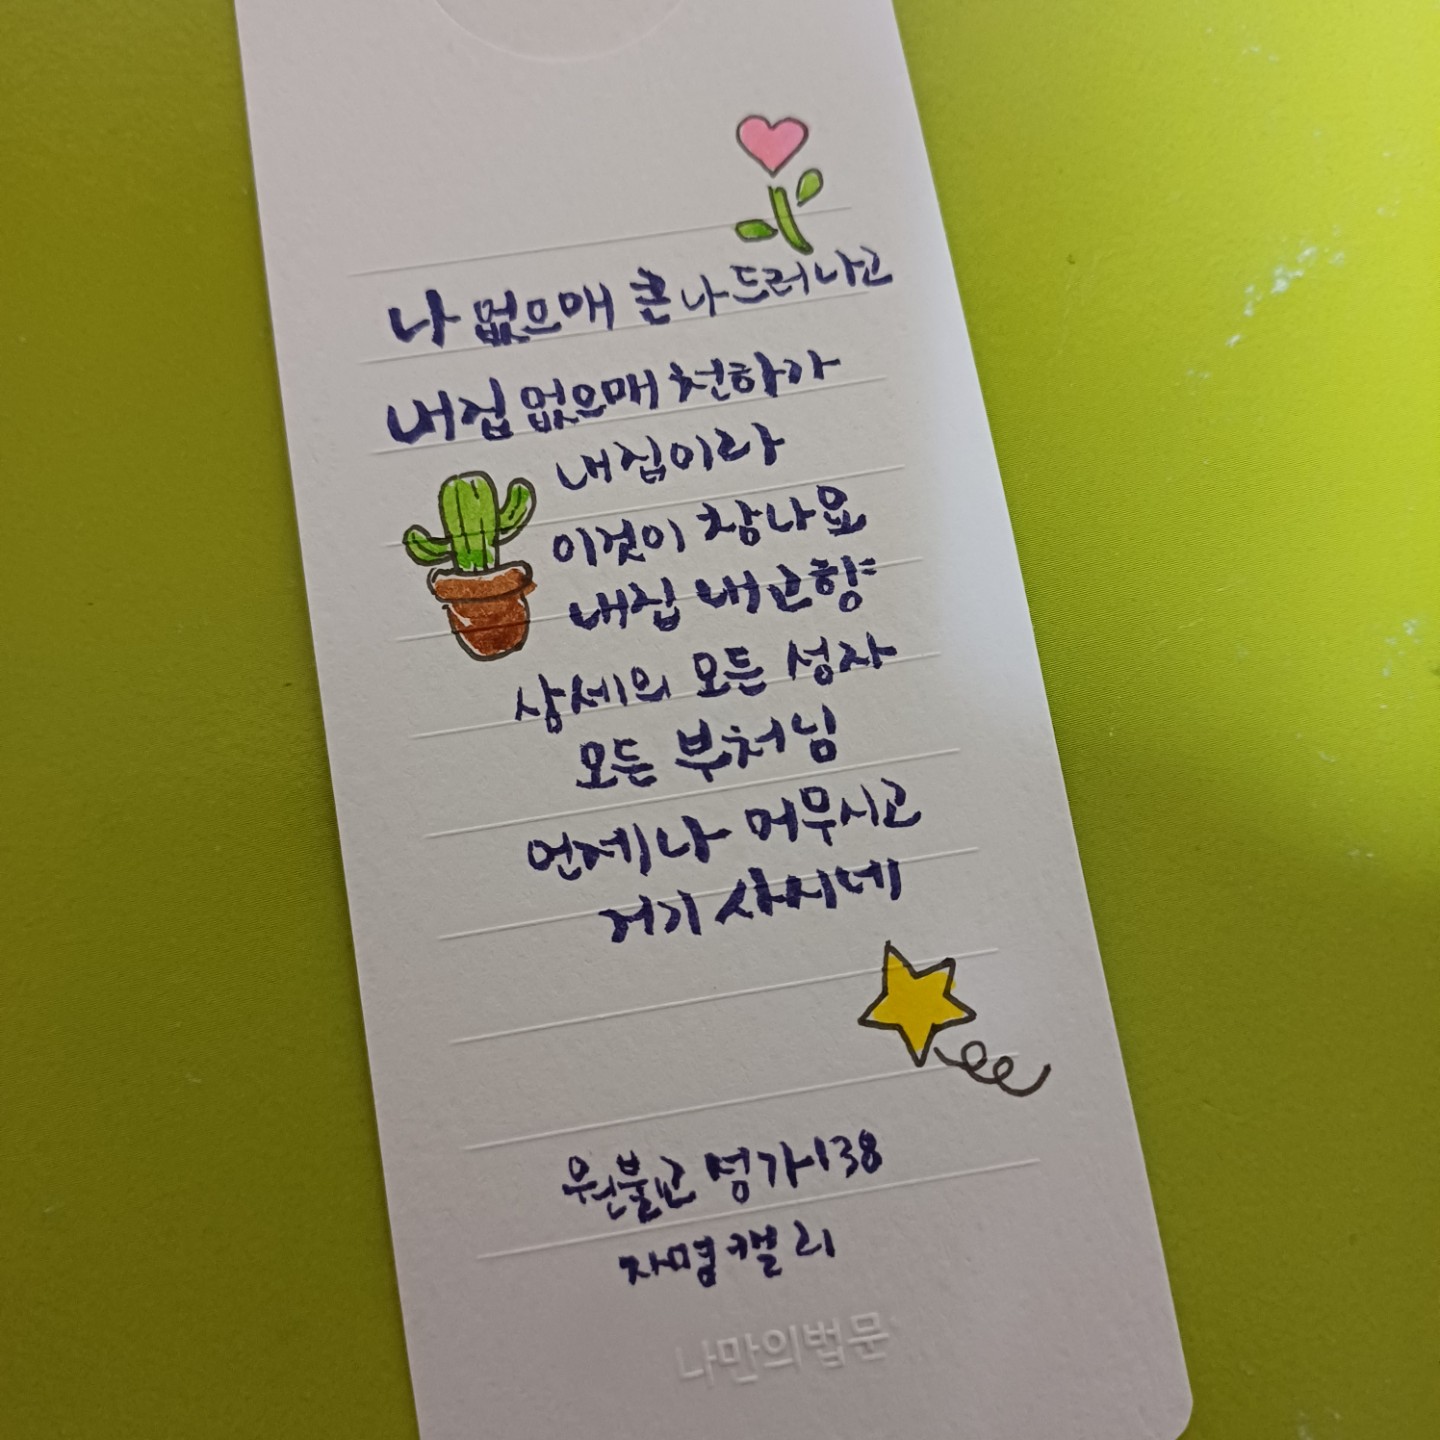 나 없으매 큰 나 드러나고
내집 없으매 천하가
내집이라
이것이 참나요
내집 내고향
삼세의 모든 성자
모든 부처님
언제나 머무시고
거기 사시네
원불교 성가 138
자명캘리
나만의법문